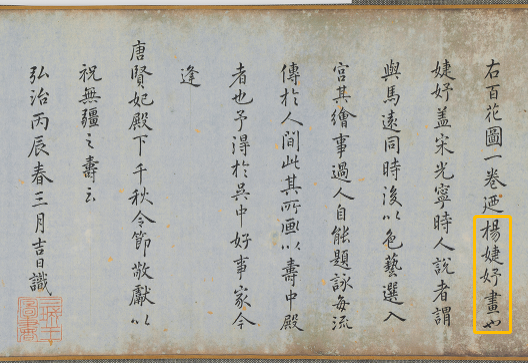 右百花圖一卷廼楊婕妤畫也
婕妤盖宋光寧時人說者謂
與馬遠同時後以色藝選入
宮其繪事過人自能題詠每流
傳於人間此其所画以壽中殿
者也予得於吳中好事家今
逢
唐賢妃殿下千秋令節敬獻以
祝無疆之壽云
弘治丙辰春三月吉日識